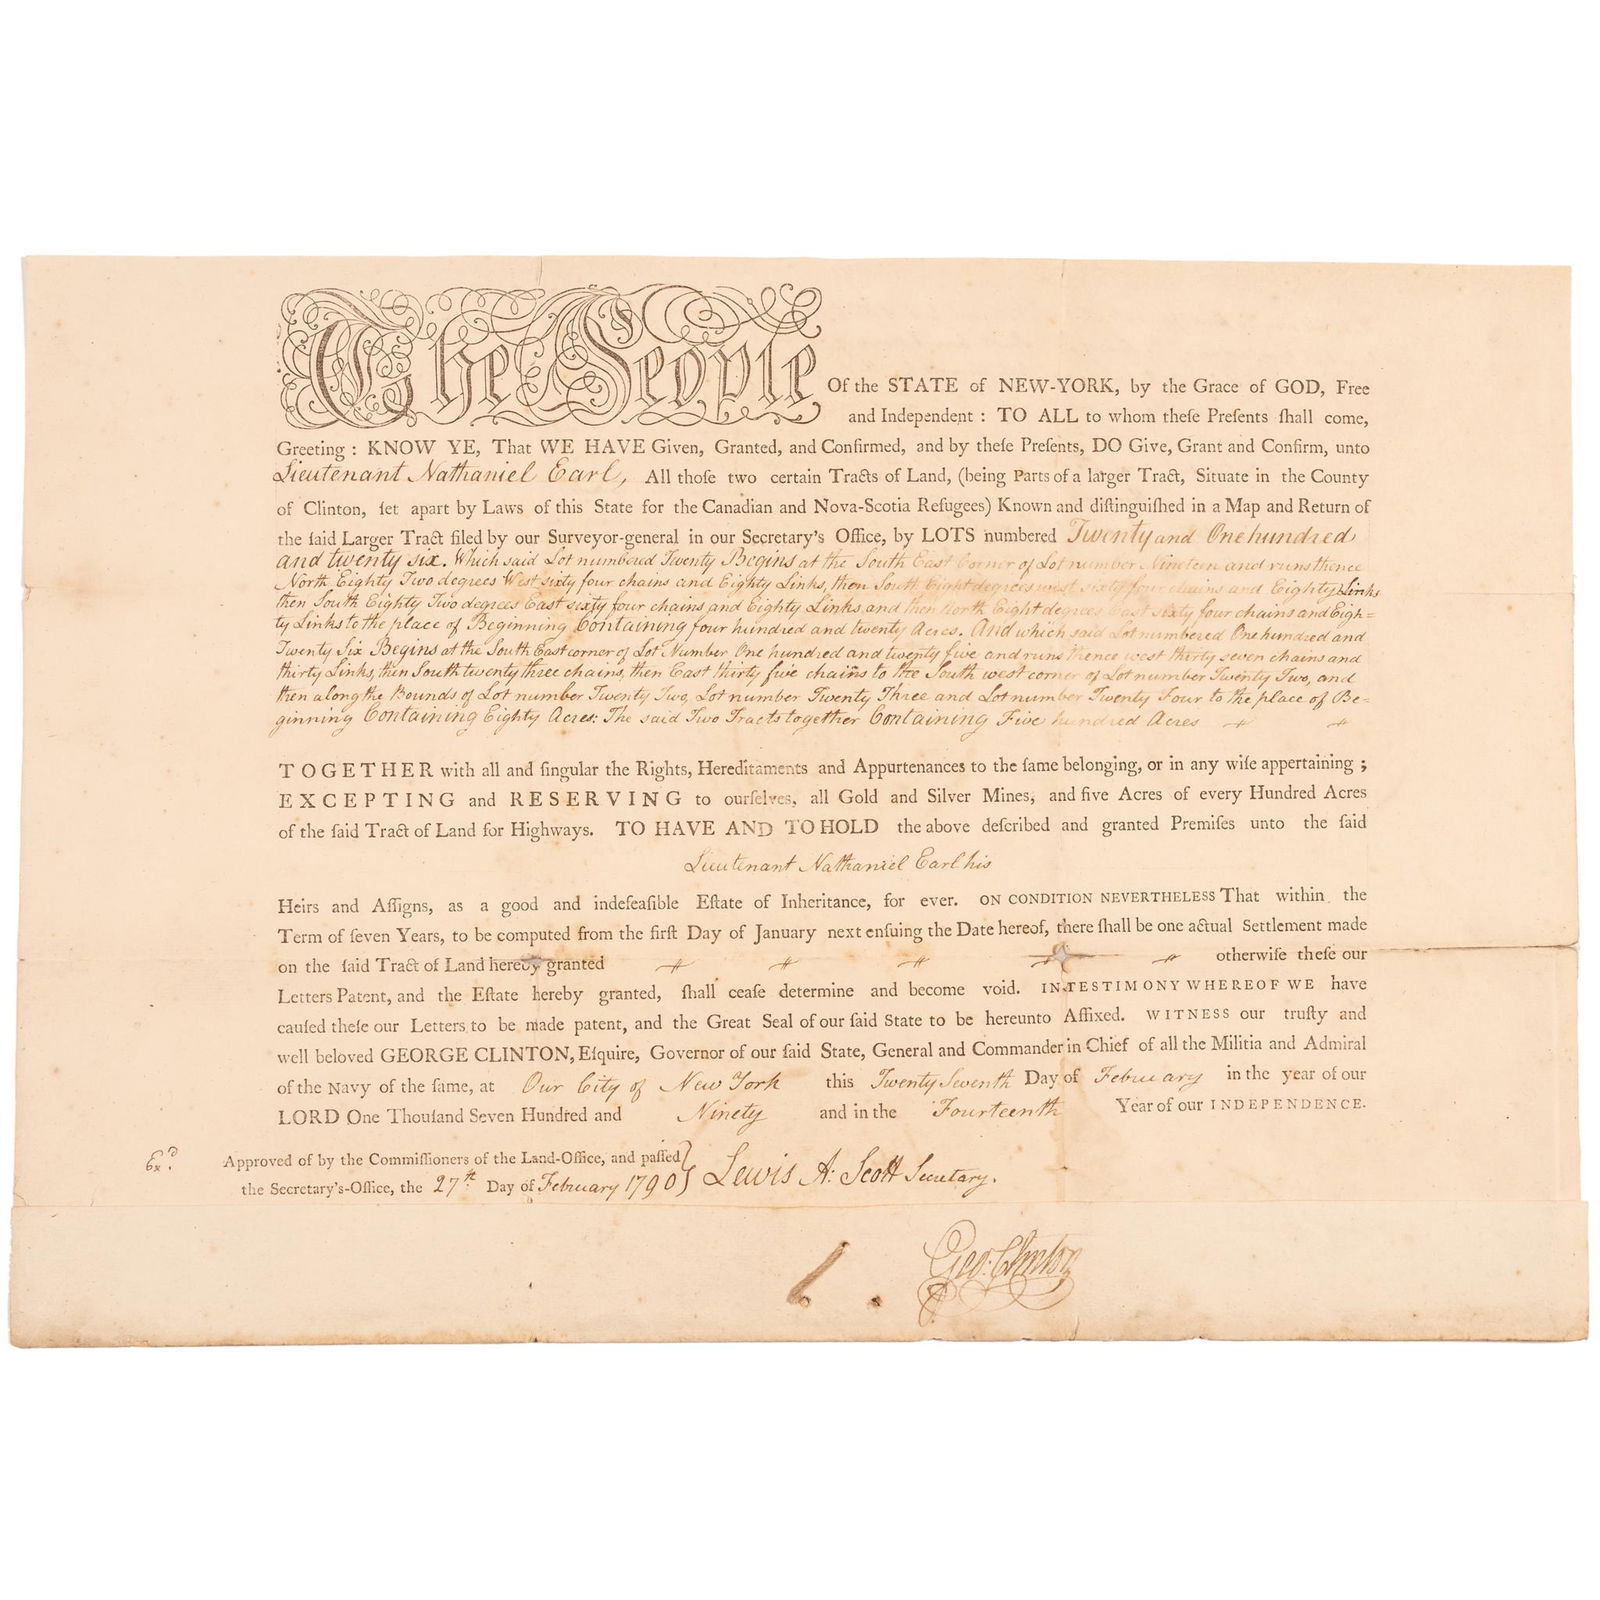 The People Of the STATE of NEW-YORK, by the Grace of GOD, Free
and Independent: TO ALL to whom theſe Preſents ſhall come,
Greeting: KNOW YE, That WE HAVE Given, Granted, and Confirmed, and by theſe Preſents, DO Give, Grant and Confirm, unto
Lieutenant Nathaniel Earl, All thoſe two certain Tracts of Land, (being Parts of a larger Tract, Situate in the County
of Clinton, ſet apart by Laws of this State for the Canadian and Nova-Scotia Refugees) Known and diſtinguiſhed in a Map and Return of
the ſaid Larger Tract filed by our Surveyor-general in our Secretary's Office, by LOTS numbered Twenty and One hundred
and twenty six. Which said Lot numbered Twenty Begins at the South East Corner of Lot number Nineteen and runs thence
North Eighty Two degrees West sixty four chains and Eighty Links, then South Eight degrees west sixty four chains and Eighty Links
then South Eighty Two degrees East sixty four chains and Eighty Links and then North Eight degrees East sixty four chains and Eigh=
ty Links to the place of Beginning Containing four hundred and twenty Acres. And which said Lot numbered One hundred and
Twenty Six Begins at the South East corner of Lot Number One hundred and twenty five and runs thence west thirty seven chains and
thirty Links, then South twenty three chains, then East thirty five chains to the South west corner of Lot number Twenty Two, and
then along the Bounds of Lot number Twenty Two, Lot number Twenty Three and Lot number Twenty Four to the place of Be=
ginning Containing Eighty Acres: The said Two Tracts together Containing Five hundred Acres
TOGETHER with all and ſingular the Rights, Hereditaments and Appurtenances to the ſame belonging, or in any wiſe appertaining;
EXCEPTING and RESERVING to ourſelves, all Gold and Silver Mines, and five Acres of every Hundred Acres
of the ſaid Tract of Land for Highways. TO HAVE AND TO HOLD the above deſcribed and granted Premiſes unto the ſaid
Lieutenant Nathaniel Earl his
Heirs and Aſſigns, as a good and indefeaſible Eſtate of Inheritance, for ever. ON CONDITION NEVERTHELESS That within the
Term of ſeven Years, to be computed from the firſt Day of January next enſuing the Date hereof, there ſhall be one actual Settlement made
on the ſaid Tract of Land hereby granted otherwiſe theſe our
Letters Patent, and the Eſtate hereby granted, ſhall ceaſe determine and become void. IN TESTIMONY WHEREOF WE have
cauſed theſe our Letters to be made patent, and the Great Seal of our ſaid State to be hereunto Affixed. WITNESS our truſty and
well beloved GEORGE CLINTON, Eſquire, Governor of our ſaid State, General and Commander in Chief of all the Militia and Admiral
of the Navy of the ſame, at Our City of New York this Twenty Seventh Day of February in the year of our
LORD One Thouſand Seven Hundred and Ninety and in the Fourteenth Year of our INDEPENDENCE.
Exd. Approved of by the Commiſſioners of the Land-Office, and paſſed
the Secretary's-Office, the 27th Day of February 1790 Lewis A: Scott Secretary.
Geo: Clinton